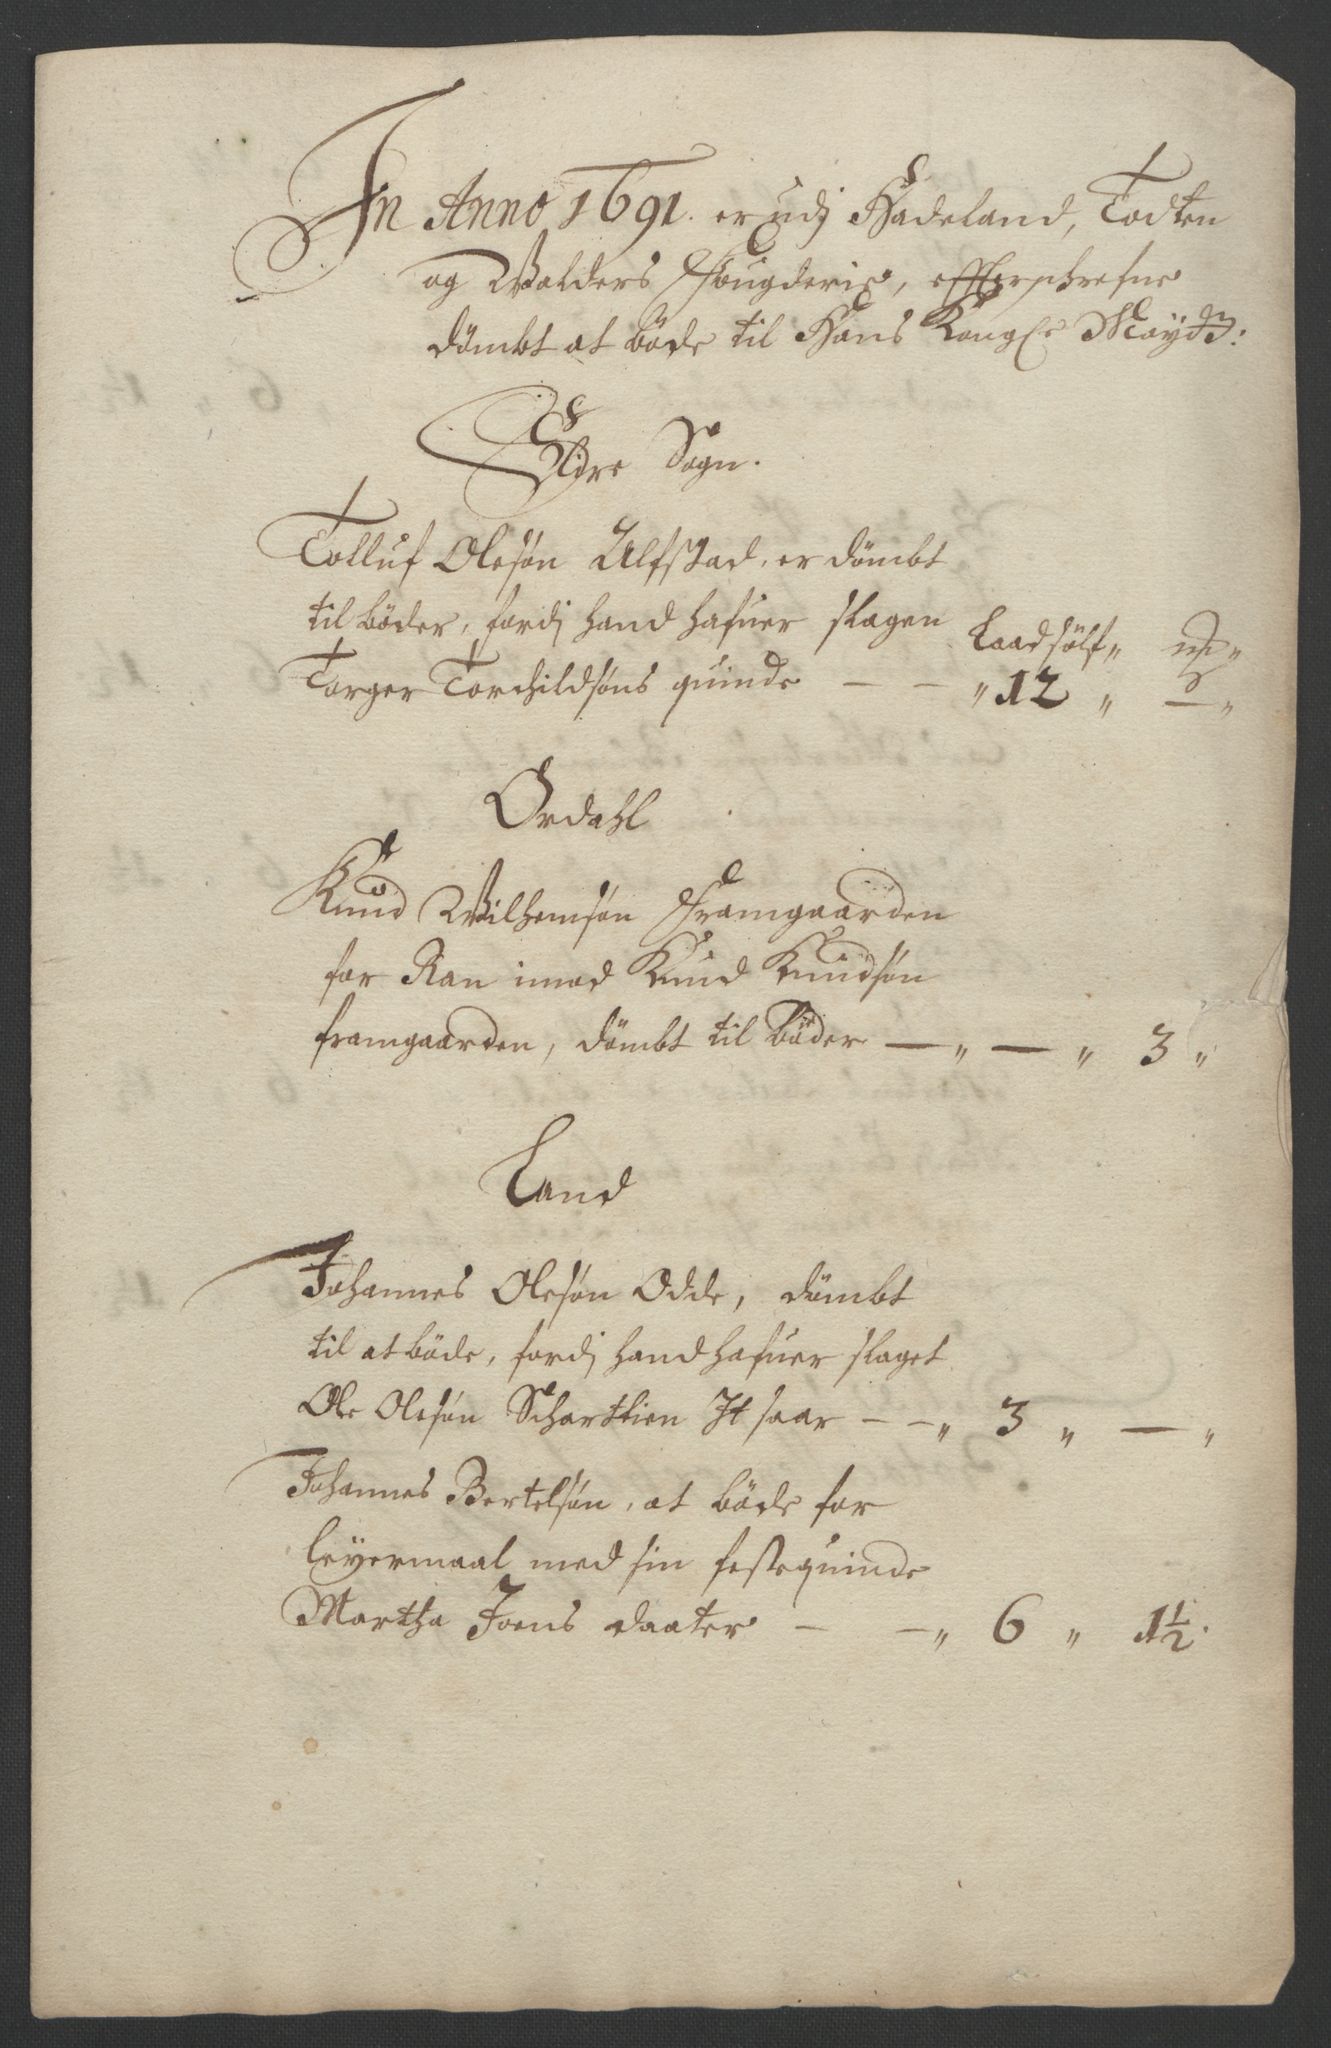 In Anno 1691. er udj Hadeland, Todten
og Walders Fougderie, effterschrefne
dömbt at böde til Hans Kongle Mayst:
Ødre Sogn.
Tolluf Olesøn Ulfstad, er dömbt
til böder, fordj hand hafuer slagen
Torger Torchildsøns quinde — — " 12 " — "
Laadsölf " "
Ordahl
Knud Wilhemsøn Framgaarden
for Ran imod Knud Knudsøn
framgaarden, dömbt til böder — " — " 3 "
Land
Johannes Olesøn Odde, dömbt
til at böde, fordj hand hafuer slaget
Ole Olesøn Schartlien It saar — — " 3 " — "
Johannes Bertelsøn, at böde for
leyermaal med sin festequinde
Martha Joens daater — — " 6 " 1½.